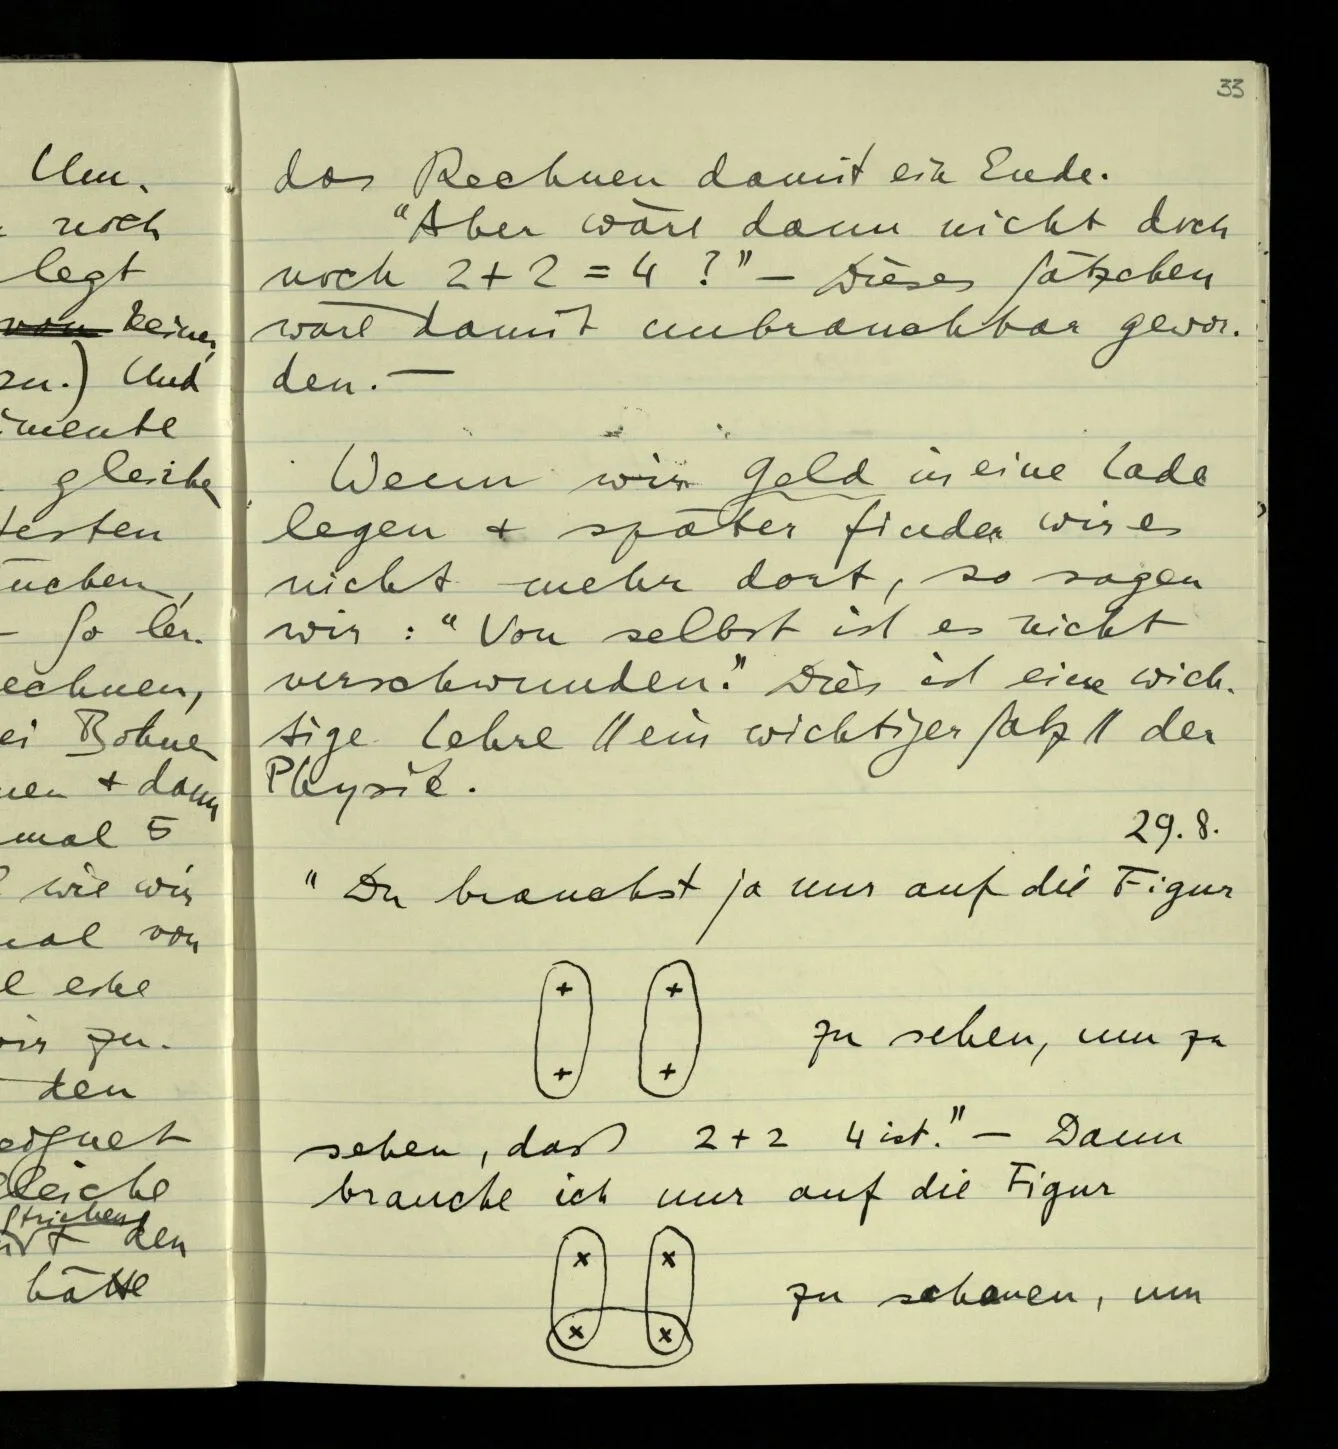 33
Um-
noch
legt
von keiner
zu.) Und
gleiche
testen
- So ler-
echnen,
ei Bohnen
+ dann
mal 5
wie wir
von
wir zu-
den
eignet
gleiche
Strichen
den
hätte
das Rechnen damit ein Ende.
"Aber wäre dann nicht doch
noch 2 + 2 = 4 ?" – Dieses Sätzchen
wäre damit unbrauchbar gewor-
den. –
Wenn wir Geld in eine Lade
legen + später finden wir es
nicht mehr dort, so sagen
wir : "Von selbst ist es nicht
verschwunden." Dies ist eine wich-
tige Lehre // ein wichtiger Satz // der
Physik.
29.8.
"Du brauchst ja nur auf die Figur
+ +
+ +
zu sehen, um zu
sehen, daß 2 + 2 4 ist." – Dann
brauche ich nur auf die Figur
x x
x x
zu schauen, um